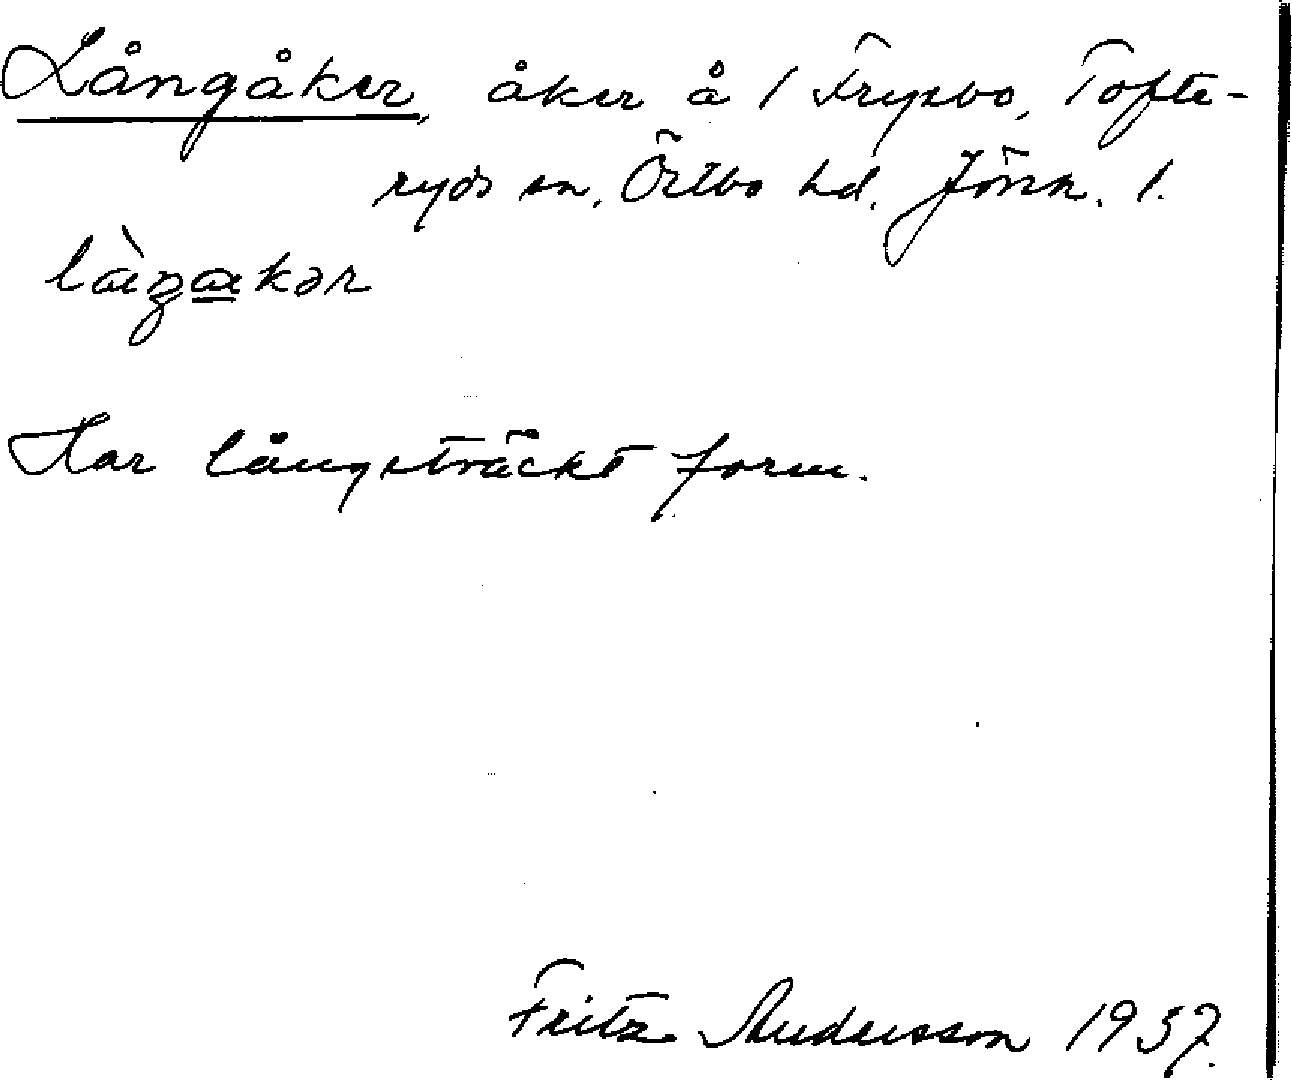 Långåker, åker å 1 Frysbo, Tofte-
ryds sn, Östbo hd. Jönk. l.
làŋakər
Har långsträckt form.
Fritz Andersson 1937.